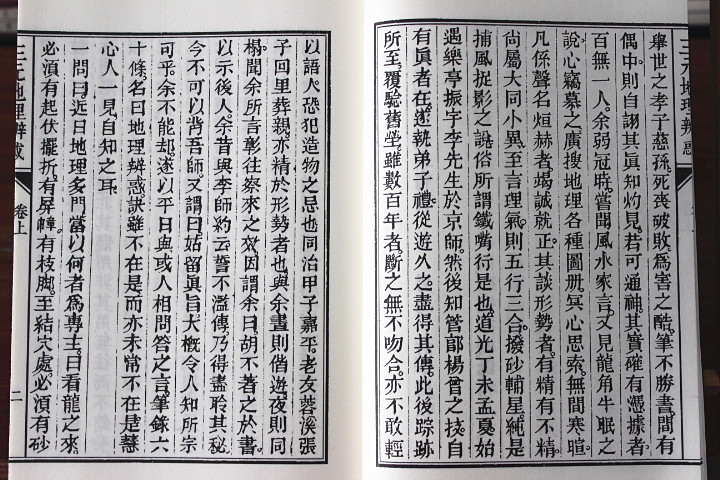 三元地理辨惑
舉世之孝子慈孫。死喪破敗爲害之酷。筆不勝書。間有
偶中。則自詡其真知灼見。若可通神。其實確有憑據者
百無一人。余弱冠時。嘗聞風水家言。又見龍角牛眠之
說。心竊慕之。廣搜地理各種圖册。冥心思索。無間寒暄
凡係聲名烜赫者。竭誠就正。其談形勢者。有精有不精。
尙屬大同小異。至言理氣。則五行三合。撥砂輔星。純是
捕風捉影之說。俗所謂鐵嘴行是也。道光丁未孟夏。始
遇樂亭振宇李先生於京師。然後知管郎楊曾之技。自
有眞者在。遂執弟子禮。從遊久之。盡得其傳。此後踪跡
所至。覆驗舊塋。雖數百年者。斷之無不吻合。亦不敢輕
以語人。恐犯造物之忌也。同治甲子嘉平。老友蓉溪張
子回里葬親。亦精於形勢者也。與余晝則偕遊。夜則同
榻。聞余所言彰往察來之效。因謂余曰。胡不著之於書。
以示後人。余昔與李師約云。誓不濫傳。乃得盡聆其秘。
今不可以背吾師。又謂曰。姑留眞旨大槪。令人知所宗
可乎。余不能却。遂以平日與或人相問答之言。筆錄六
十條。名曰地理辨惑。訣雖不在是。而亦未常不在是。慧
心人一見自知之耳
一問曰。近日地理多門。當以何者爲專主。曰看龍之來。
必須有起伏擺折。有屏幛。有枝脚。至結穴處。必須有砂
三元地理辨惑
卷上
二